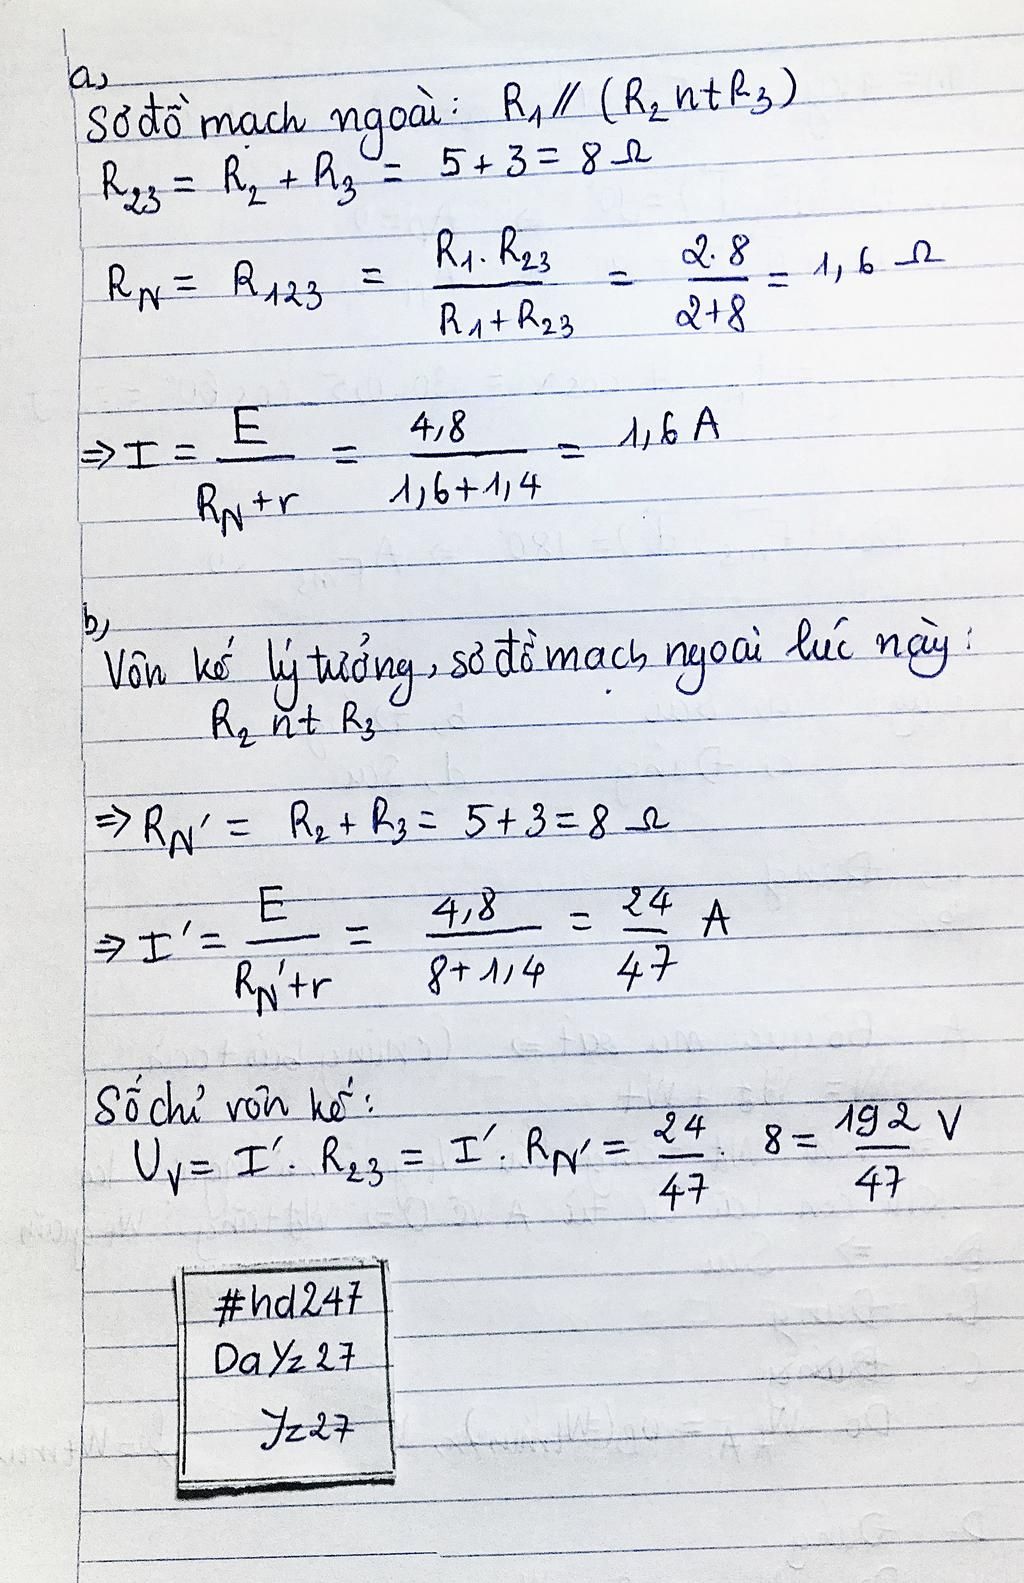 a,
Sơ đồ mạch ngoài: R₁ // (R₂ nt R₃)
R₂₃ = R₂ + R₃ = 5 + 3 = 8 Ω
R_N = R₁₂₃ = (R₁ . R₂₃)/(R₁ + R₂₃) = (2.8)/(2+8) = 1,6 Ω
⇒ I = E/(R_N + r) = 4,8/(1,6+1,4) = 1,6 A
b,
Vôn kế lý tưởng, sơ đồ mạch ngoài lúc này:
R₂ nt R₃
⇒ R_N' = R₂ + R₃ = 5 + 3 = 8 Ω
⇒ I' = E/(R_N' + r) = 4,8/(8+1,4) = 24/47 A
Số chỉ vôn kế:
U_V = I' . R₂₃ = I' . R_N' = 24/47 . 8 = 192/47 V
#hd247
DaYz27
Yz27